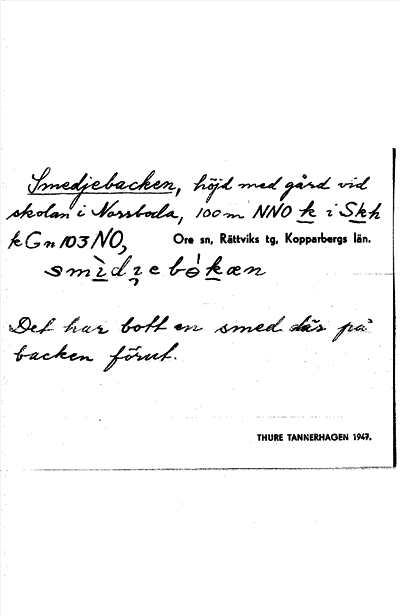 Smedjebacken, höjd med gård vid
skolan i Norrboda, 100 m NNO k i Skh
k G n 103 NO, Ore sn, Rättviks tg, Kopparbergs län.
Det har bott en smed där på
backen förut.
THURE TANNERHAGEN 1947.